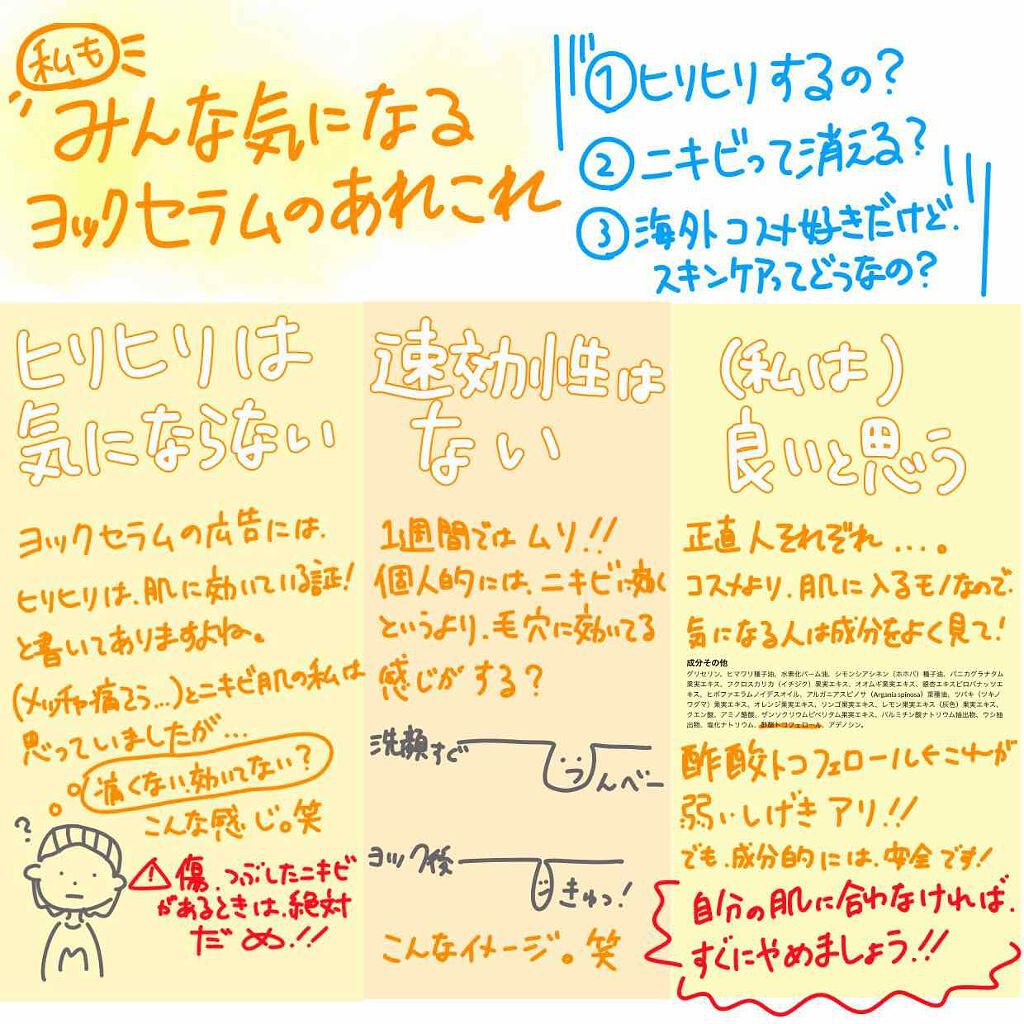 私も
みんな気になる
ヨックセラムのあれこれ
①ヒリヒリするの?
②ニキビって消える?
③海外コスメ好きだけど.
スキンケアってどうなの?
ヒリヒリは
気にならない
ヨックセラムの広告には、
ヒリヒリは、肌に効いている証!
と書いてありますよね。
(メッチャ痛そう...)とニキビ肌の私は
思っていましたが...
痛くない、効いてない?
こんな感じ。笑
?
⚠傷、つぶしたニキビ
があるときは、絶対
だめ!!
速効性は
ない
1週間ではムリ!!
個人的には、ニキビに効く
というより、毛穴に効いてる
感じがする?
洗顔すぐ
んべー
ヨック後
きゅっ!
こんなイメージ。笑
(私は)
良いと思う
正直人それぞれ...。
コスメより、肌に入るモノなので、
気になる人は成分をよく見て!
成分その他
グリセリン、ヒマワリ種子油、水素化パーム油、シモンシアシネン(ホホバ)種子油、パニカグラナタム
果実エキス、フクロスカリカ(イチジク)果実エキス、オオムギ果実エキス、銀杏エキスピロバナッツエ
キス、ヒポファエラムノイデスオイル、アルガニアスピノサ(Argania spinosa)葉種油、ツバキ(ツキノ
ワグマ)果実エキス、オレンジ果実エキス、リンゴ果実エキス、レモン果実エキス(灰色)果実エキス、
クエン酸、アミノ酪酸、ザンソクリウムビベリタム果実エキス、パルミチン酸ナトリウム抽出物、ウシ抽
出物、塩化ナトリウム、酢酸トコフェロール、アデノシン。
酢酸トコフェロール←これが
弱いしげきアリ!!
でも、成分的には、安全です!
自分の肌に合わなければ、
すぐにやめましょう!!